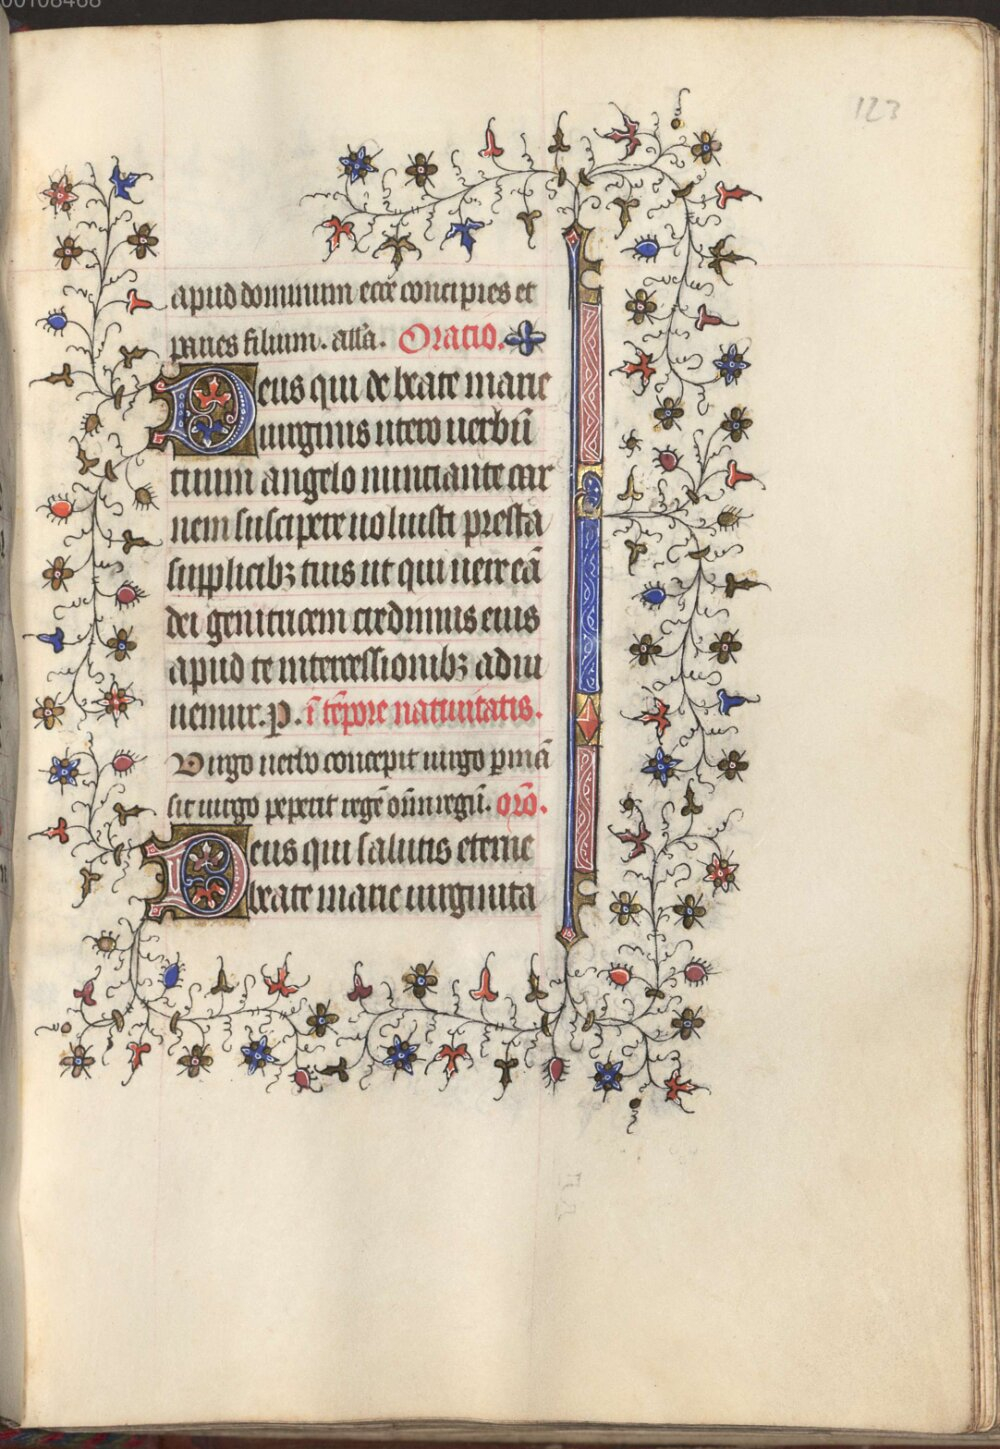 00108468
123
apud dominum ecce concipies et
paries filium. alla. Oratio.
Deus qui de beate marie
uirginis utero uerbū
tuum angelo nunciante car
nem suscipere uoluisti presta
supplicibꝫ tuis ut qui uere eā
dei genitricem credimus eius
apud te intercessionibꝫ adiu
uemur. P. ī tēpore natiuitatis.
Virgo uerbo concepit uirgo pmā
sit uirgo peperit regē oīm regū. orō.
Deus qui salutis eterne
beate marie uirginita